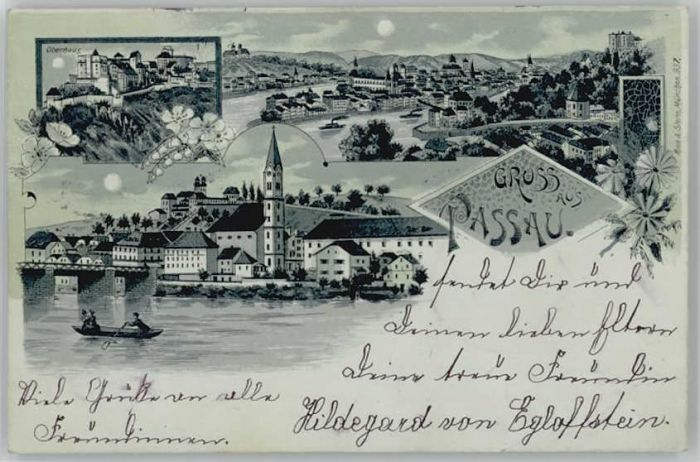 Oberhaus
GRUSS AUS
PASSAU.
sendet Dir und
Deinen lieben Eltern
Deine treue Freundin
Hildegard von Egloffstein.
Viele Grüße an alle
Freundinnen.